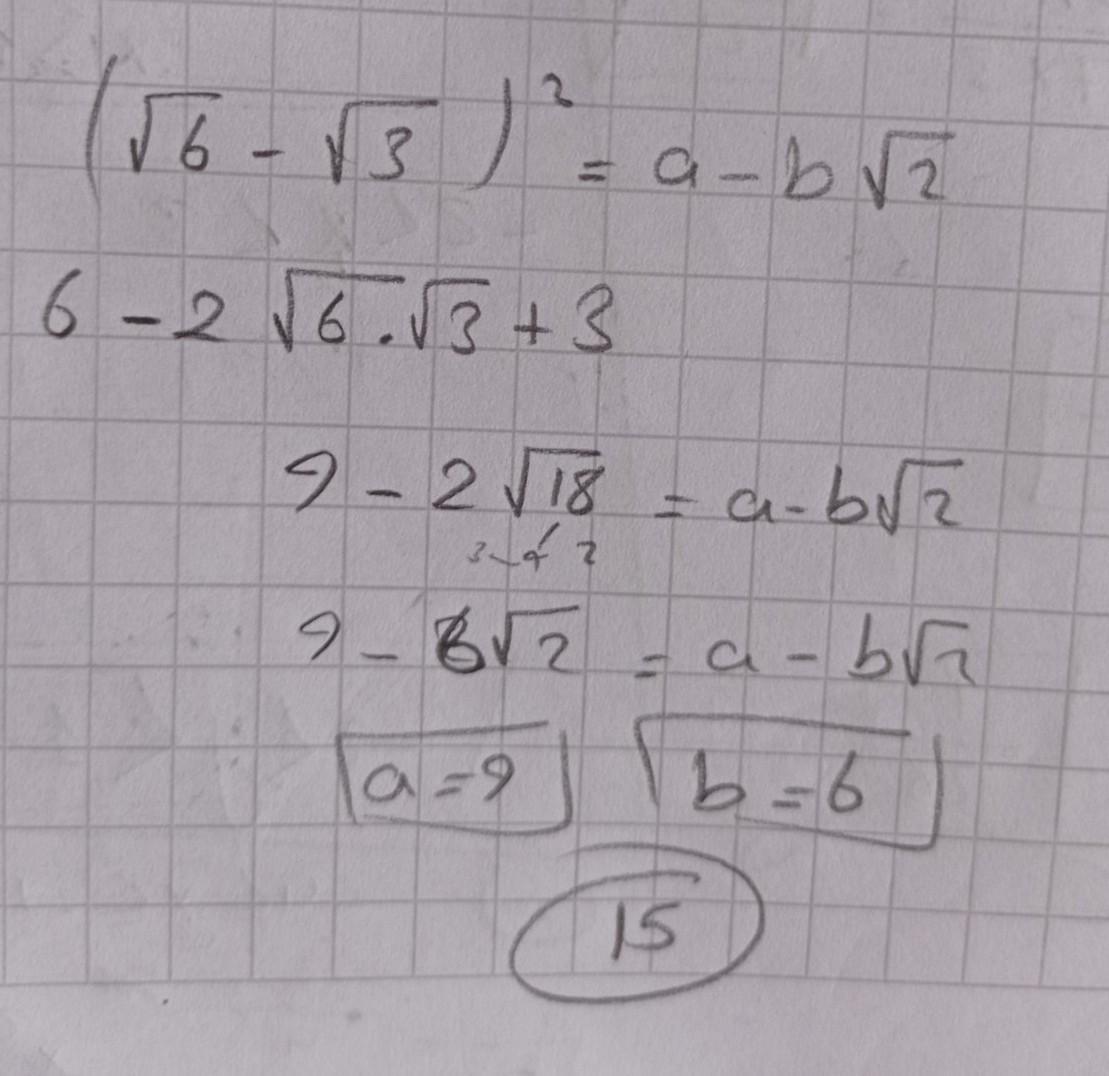 (√6 - √3)² = a - b√2
6 - 2 √6 . √3 + 3
9 - 2 √18 = a - b√2
9 - 6√2 = a - b√2
a = 9 b = 6
15